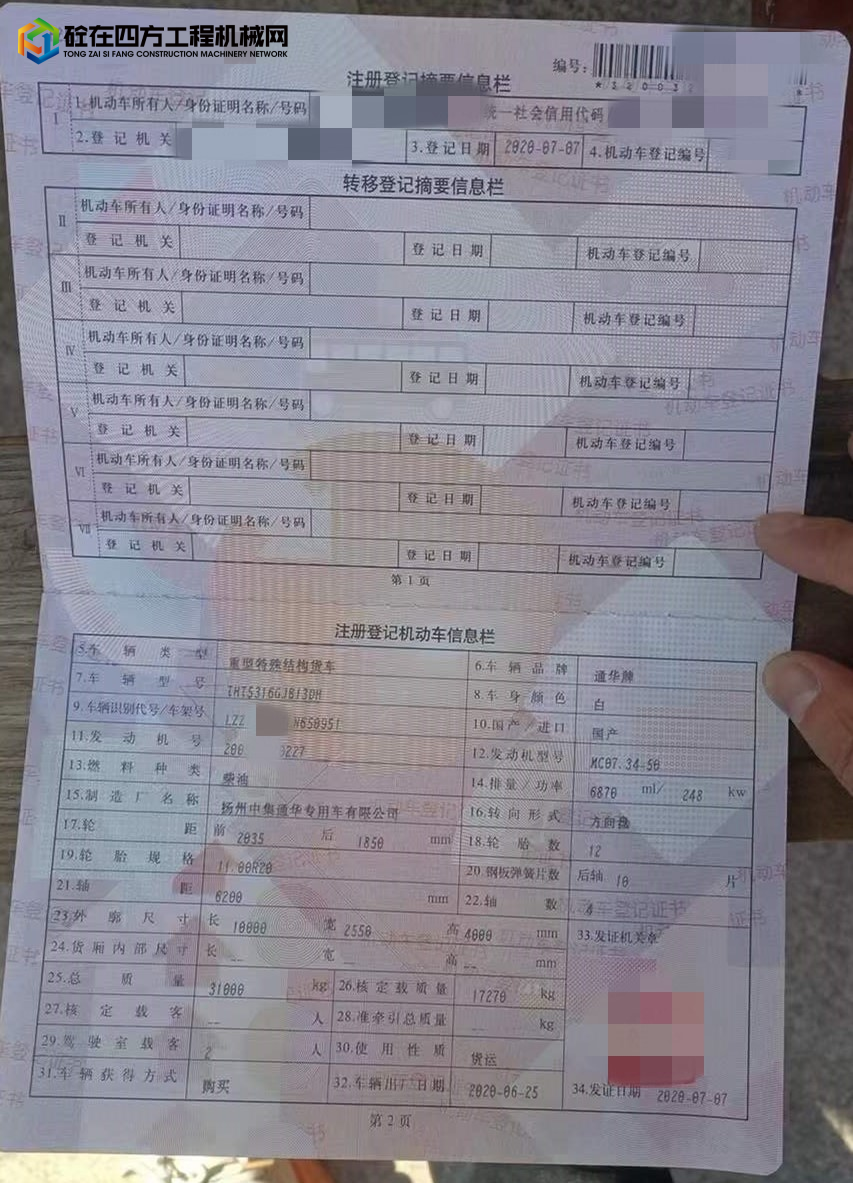 砼在四方工程机械网
TONG ZAI SI FANG CONSTRUCTION MACHINERY NETWORK
注册登记摘要信息栏
编号:
*32003
*
I
1.机动车所有人/身份证明名称/号码
统一社会信用代码
2.登记机关
3.登记日期 2020-07-07 4.机动车登记编号
转移登记摘要信息栏
II
机动车所有人/身份证明名称/号码
登记机关 登记日期 机动车登记编号
III
机动车所有人/身份证明名称/号码
登记机关 登记日期 机动车登记编号
IV
机动车所有人/身份证明名称/号码
登记机关 登记日期 机动车登记编号
V
机动车所有人/身份证明名称/号码
登记机关 登记日期 机动车登记编号
VI
机动车所有人/身份证明名称/号码
登记机关 登记日期 机动车登记编号
VII
机动车所有人/身份证明名称/号码
登记机关 登记日期 机动车登记编号
第1页
注册登记机动车信息栏
5.车辆类型 重型特殊结构货车 6.车辆品牌 通华牌
7.车辆型号 THT5316GJB13DH 8.车身颜色 白
9.车辆识别代号/车架号 LZZ N650951 10.国产/进口 国产
11.发动机号 200 0227 12.发动机型号 MC07.34-50
13.燃料种类 柴油 14.排量/功率 6870 ml/ 248 kw
15.制造厂名称 扬州中集通华专用车有限公司 16.转向形式 方向盘
17.轮距 前 2035 后 1850 mm 18.轮胎数 12
19.轮胎规格 11.00R20 20.钢板弹簧片数 后轴 10 片
21.轴距 6200 mm 22.轴数 4
23.外廓尺寸 长 10000 宽 2550 高 4000 mm 33.发证机关章
24.货厢内部尺寸 长 -- 宽 -- 高 -- mm
25.总质量 31000 kg 26.核定载质量 17270 kg
27.核定载客 -- 人 28.准牵引总质量 -- kg
29.驾驶室载客 2 人 30.使用性质 货运
31.车辆获得方式 购买 32.车辆出厂日期 2020-06-25 34.发证日期 2020-07-07
第2页